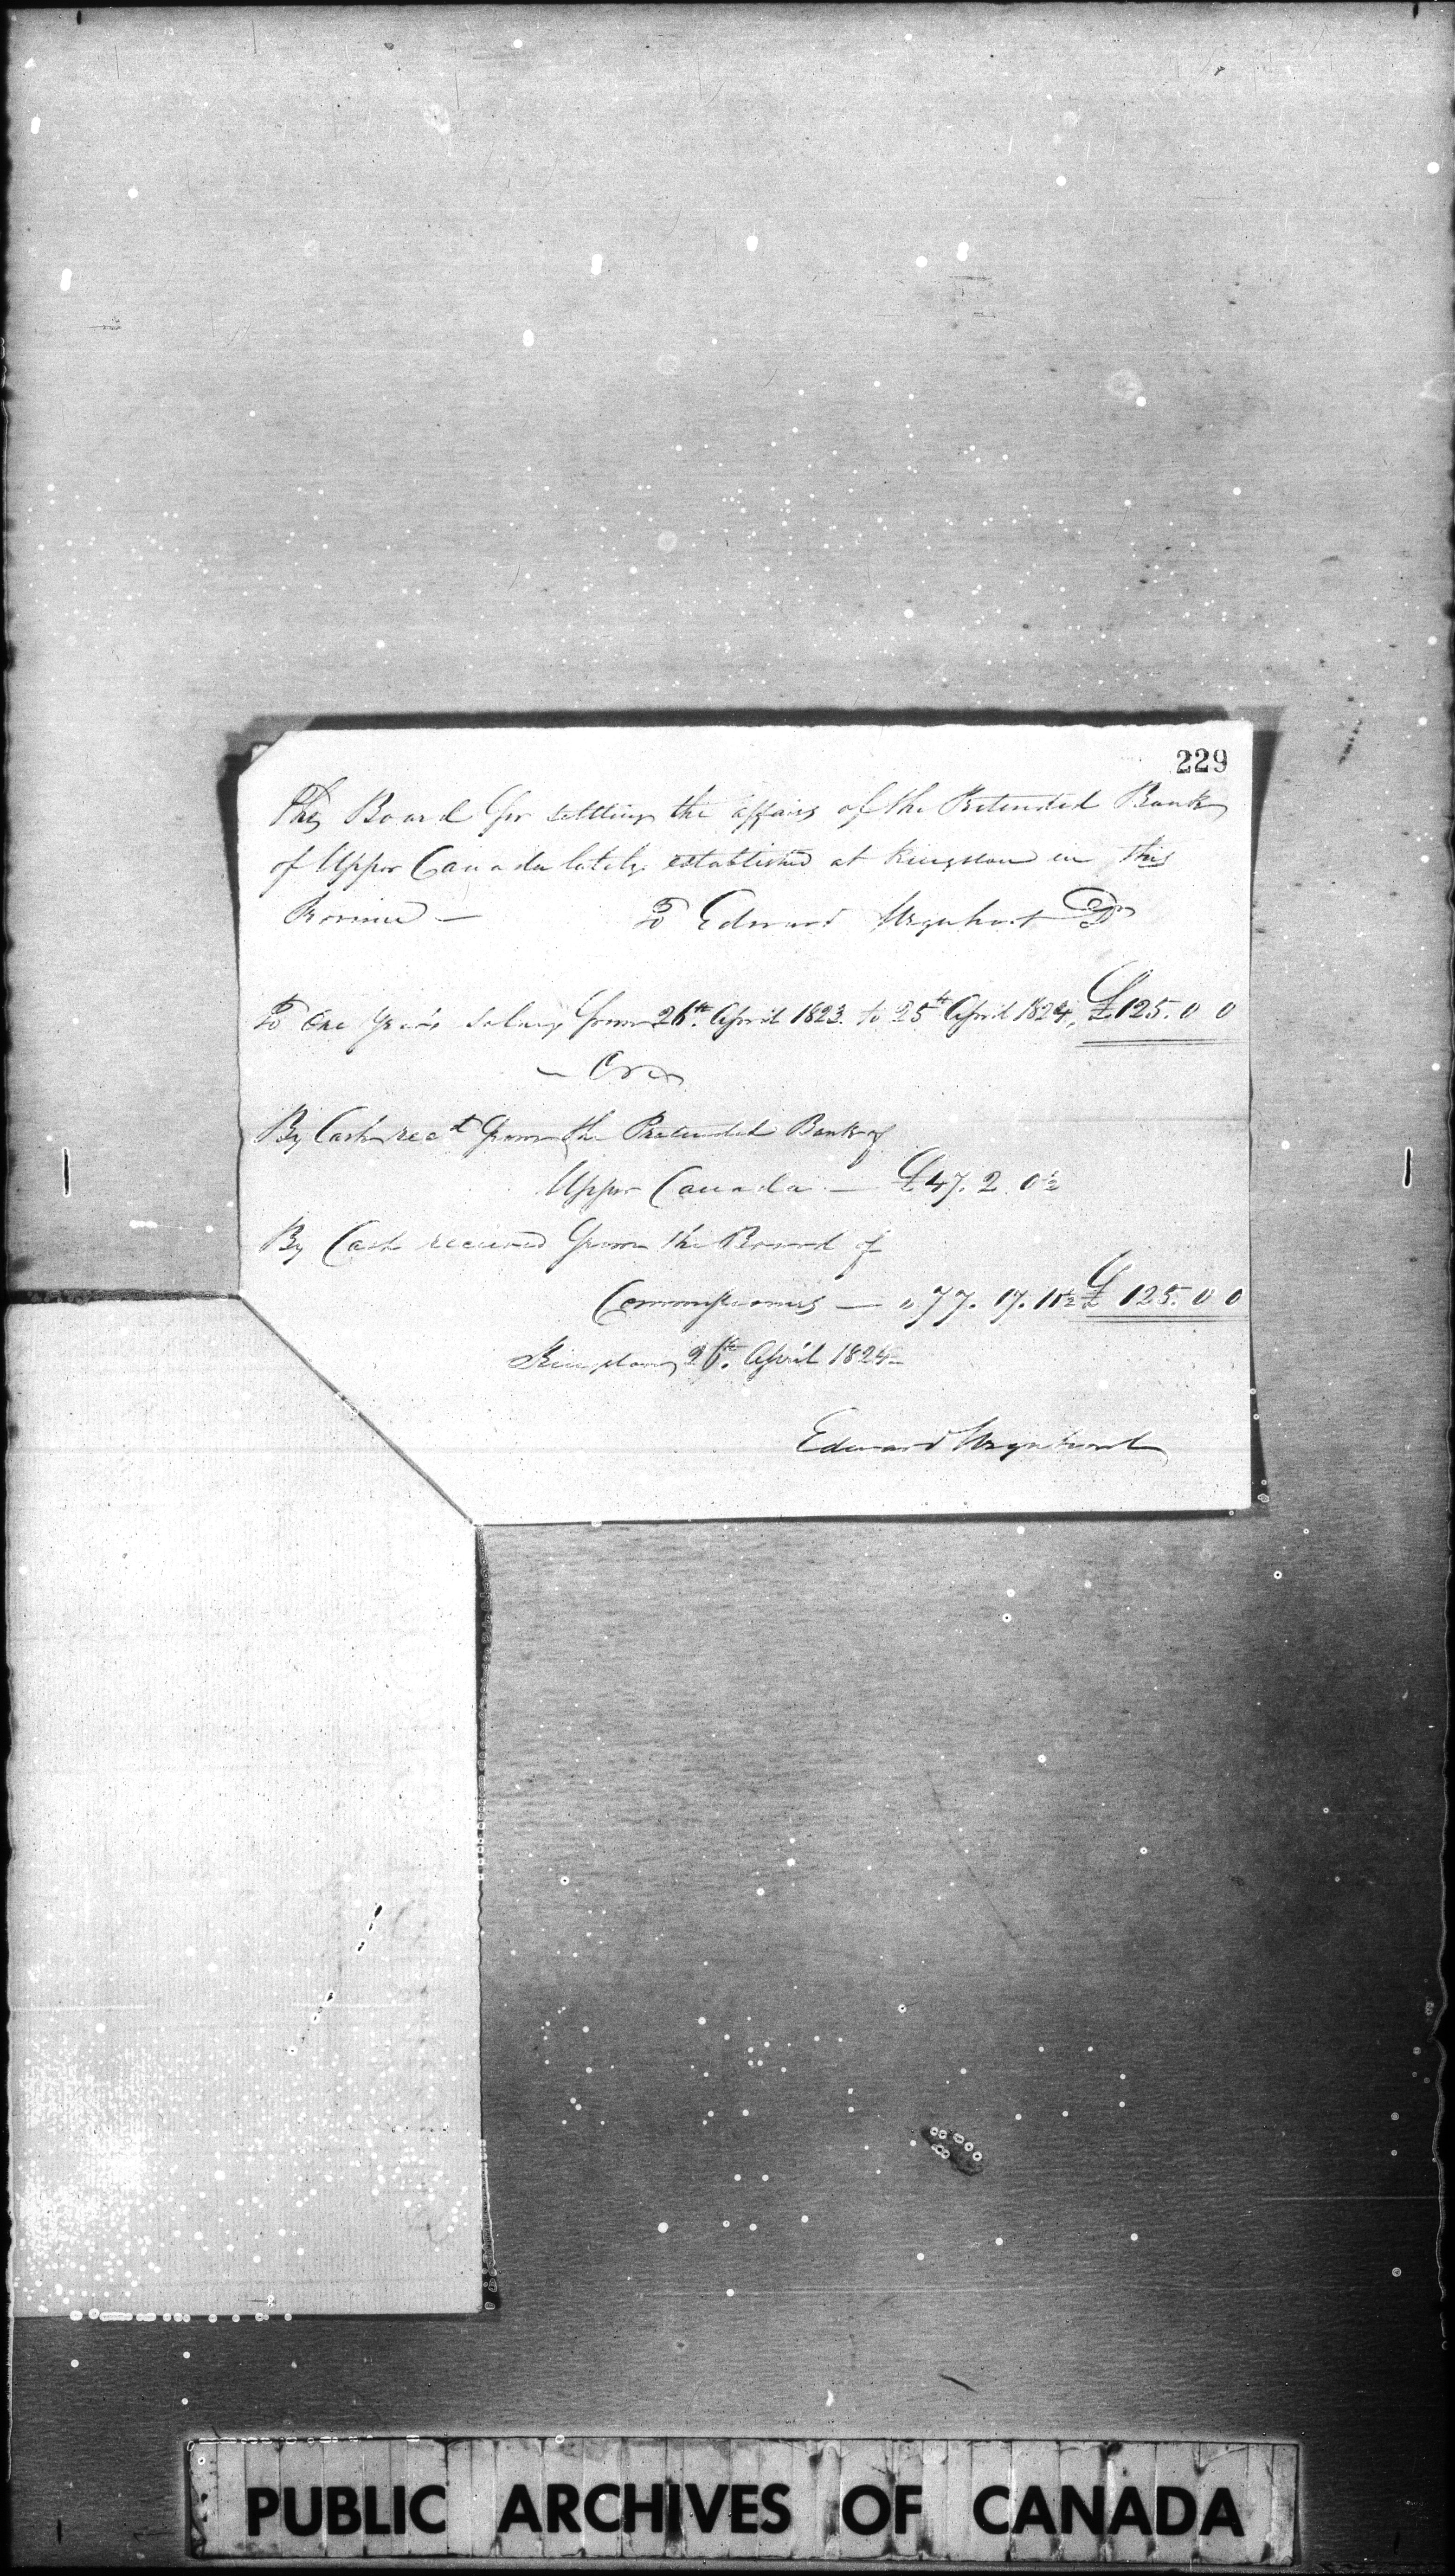 229
The Board for settling the affairs of the Pretended Bank
of Upper Canada lately established at Kingston in this
Province — To Edward Urquhart Dr
To One Year's Salary from 26th. April 1823. to 25th April 1824, £125. 0 0
— Cr —
By Cash rec'd from the Pretended Bank of
Upper Canada — £47. 2. 0½
By Cash received from the Board of
Commissioners — " 77. 17. 11½ £ 125. 0 0
Kingston, 26th. April 1824 —
Edward Urquhart
PUBLIC ARCHIVES OF CANADA